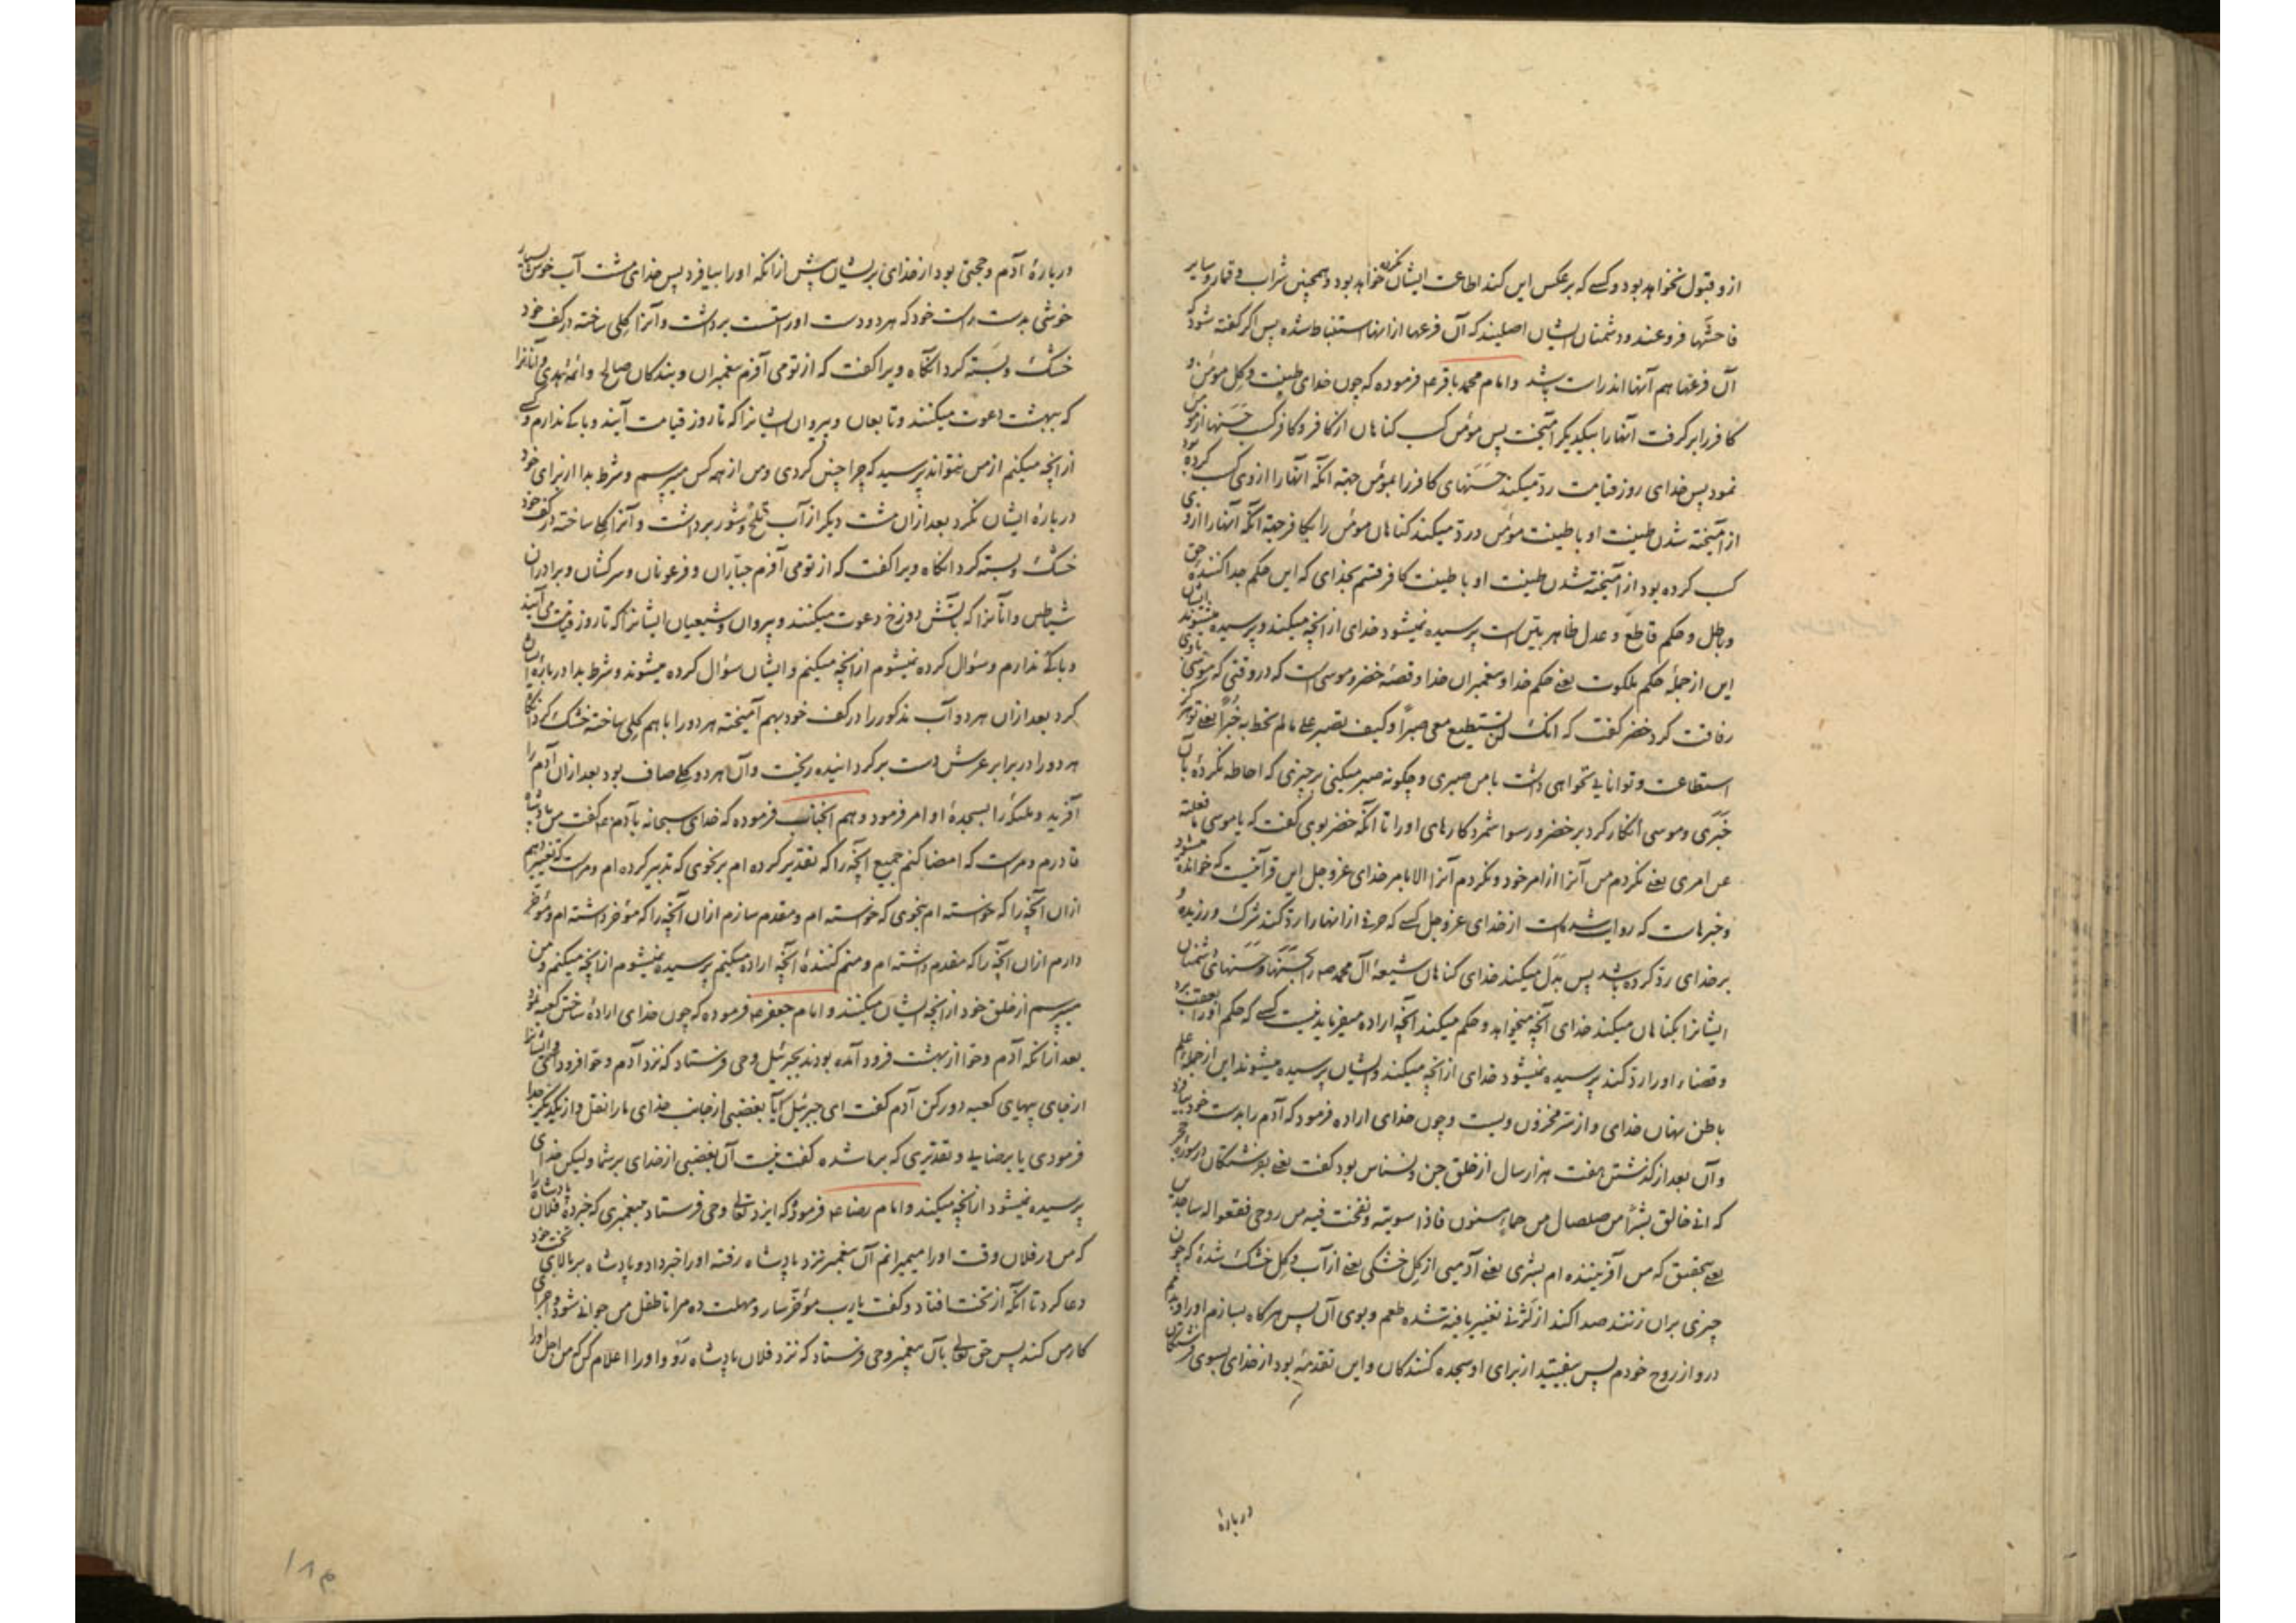 از و قبول نخواهد بود و کسے که بر عکس این کند اطاعت ایشان نکرده خواهد بود و همچنین شراب و قمار و سایر
فاحشها فروعند و دشمنان ایشان اصلیند که آن فرعها ازانها استنباط شده پس اکر کفته شود که
آن فرعها هم آنها اند راست باشد و امام محمد باقر ع فرموده که چون خدای طینت و کل مومن و
کافر را بر کرفت آنها را بیکدیکر آمیخت پس مومن کسب کناهان از کافر و کافر کسب حسنها از مومن
نمود پس خدای روز قیامت رد میکند حسنهای کافر را بمومن جهة آنکه آنها را از وی کسب کرده بود
از آمیخته شدن طینت او با طینت مومن و رد میکند کناهان مومن را بکافر جهة آنکه آنها را از وی
کسب کرده بود از آمیخته شدن طینت او با طینت کافر قسم بخدای که این حکم جدا کننده حق
و باطل و حکم قاطع و عدل ظاهر بین است پرسیده نمیشود خدای از آنچه میکند و ایشان پرسیده میشوند
این از جمله حکم ملکوت یعنے حکم خدا و پیغمبران خدا و قصه خضر و موسی است که در وقتی که موسی با وی
رفاقت کرد خضر کفت که انک لن تستطیع معی صبرا و کیف تصبر علے مالم تحط به خبرا یعنے تو هرکز
استطاعت و توانایے نخواهی داشت با من صبری و چکونه صبر میکنی بر چیزی که احاطه نکرده بآن
خبری و موسی انکار کرد بر خضر و رسوا شمرد کارهای او را تا آنکه خضر بوی کفت که یا موسی ما فعلته
عن امری یعنے نکردم من آنرا از امر خود و نکردم آنرا الا بامر خدای عز و جل این قرآنیت که خوانده میشود
و خبرهاست که روایت شده است از خدای عز و جل کسے که حرفے ازانها را رد کند شرک ورزیده و
بر خدای رد کرده باشد پس بدل میکند خدای کناهان شیعه آل محمد ص را بحسنها و حسنهای دشمنان
ایشانرا بکناهان میکند خدای آنچه میخواهد و حکم میکند آنچه اراده میفرماید نیست کسے که حکم او را تعقب برد
و قضاء او را رد کند پرسیده نمیشود خدای از آنچه میکند و ایشان پرسیده میشوند این از جمله علم
باطن نهان خدای و از سر مخزون ویست و چون خدای اراده فرمود که آدم را بدست خود بیافرد
و آن بعد از کذشتن هفت هزار سال از خلق جن و نسناس بود کفت یعنے بفرشتکان در سوره حجر
که انے خالق بشرا من صلصال من حماء مسنون فاذا سویته و نفخت فیه من روحی فقعوا له ساجدین
یعنے بتحقیق که من آفریننده ام بشری یعنے آدمیی از کل خشکی یعنے از آب و کل خشک شده که چون
چیزی بران زنند صدا کند از لزنے تغییر یافته شده طعم و بوی آن پس هرکاه بسازم او را و بدمم
درو از روح خودم پس بیفیتید از برای او سجده کنندکان و این تقدمه بود از خدای بسوی فرشتکان
درباره
درباره آدم و حجتی بود از خدای بر ایشان پیش ازانکه او را بیافرد پس خدای مشت آب خوش بسیار
خوشی بدست راست خود که هر دو دست او راستست برداشت و آنرا کلی ساخته در کف خود
خشک و بسته کرد آنکاه ویرا کفت که از تو می آفرم پیغمبران و بندکان صالح و ائمه هدی و آنانرا
که ببهشت دعوت میکنند و تابعان و پیروان ایشانرا که تا روز قیامت آیند و باکے ندارم و کسے
از آنچه میکنم از من نتواند پرسید که چرا چنین کردی و من از همه کس میپرسم و شرط بدا از برای خود
درباره ایشان نکرد بعد ازان مشت دیکر از آب تلخ و شور برداشت و آنرا کل ساخته در کف خود
خشک و بسته کرد آنکاه ویرا کفت که از تو می آفرم جباران و فرعونان و سرکشان و برادران
شیاطین و آنانرا که بآتش دوزخ دعوت میکنند و پیروان و شیعیان ایشانرا که تا روز قیامت می آیند
و باکے ندارم و سؤال کرده نمیشوم از آنچه میکنم و ایشان سؤال کرده میشوند و شرط بدا درباره ایشان
کرد بعد ازان هر دو آب مذکور را در کف خود بهم آمیخته هر دو را با هم کلی ساخته خشک کرد آنکاه
هر دو را در برابر عرش دست بر کردانیده ریخت و آن هر دو کلے صاف بود بعد ازان آدم را
آفرید و ملئکه را بسجده او امر فرمود و هم آنجناب فرموده که خدای سبحانه بآدم ع کفت من پادشاه
قادرم و مراست که امضا کنم جمیع آنچه را که تقدیر کرده ام بر نحوی که تدبیر کرده ام و مراست که تغییر دهم
ازان آنچه را که خواسته ام بنحوی که خواسته ام و مقدم سازم ازان آنچه را که مؤخر داشته ام و مؤخر
دارم ازان آنچه را که مقدم داشته ام و منم کننده آنچه اراده میکنم پرسیده نمیشوم از آنچه میکنم و من
میپرسم از خلق خود از آنچه ایشان میکنند و امام جعفر ع فرموده که چون خدای اراده ساختن کعبه نمود
بعد ازانکه آدم و حوا از بهشت فرود آمده بودند بجبرئیل وحی فرستاد که نزد آدم و حوا فرود آی و ایشانرا
از جای پیهای کعبه دور کن آدم کفت ای جبرئیل آیا بغضبی از جانب خدای ما را نقل و از یکدیکر جدا
فرمودی یا برضایے و تقدیری که بر ما شده کفت نیست آن بغضبی از خدای بر شما ولیکن خدای
پرسیده نمیشود از آنچه میکند و امام رضا ع فرموده که ایزد تعالے وحی فرستاد پیغمبری که خبر ده فلان پادشاه را
که من در فلان وقت او را میمیرانم آن پیغمبر نزد پادشاه رفته او را خبر داد و پادشاه بر بالای تخت خود
دعا کرد تا آنکه از تخت افتاد و کفت یا رب مؤخر ساز و مهلت ده مرا تا طفل من جوانے شود و اجرای
کار من کند پس حق تعالے بآن پیغمبر وحی فرستاد که نزد فلان پادشاه رو و او را اعلام کن که من اجل او را